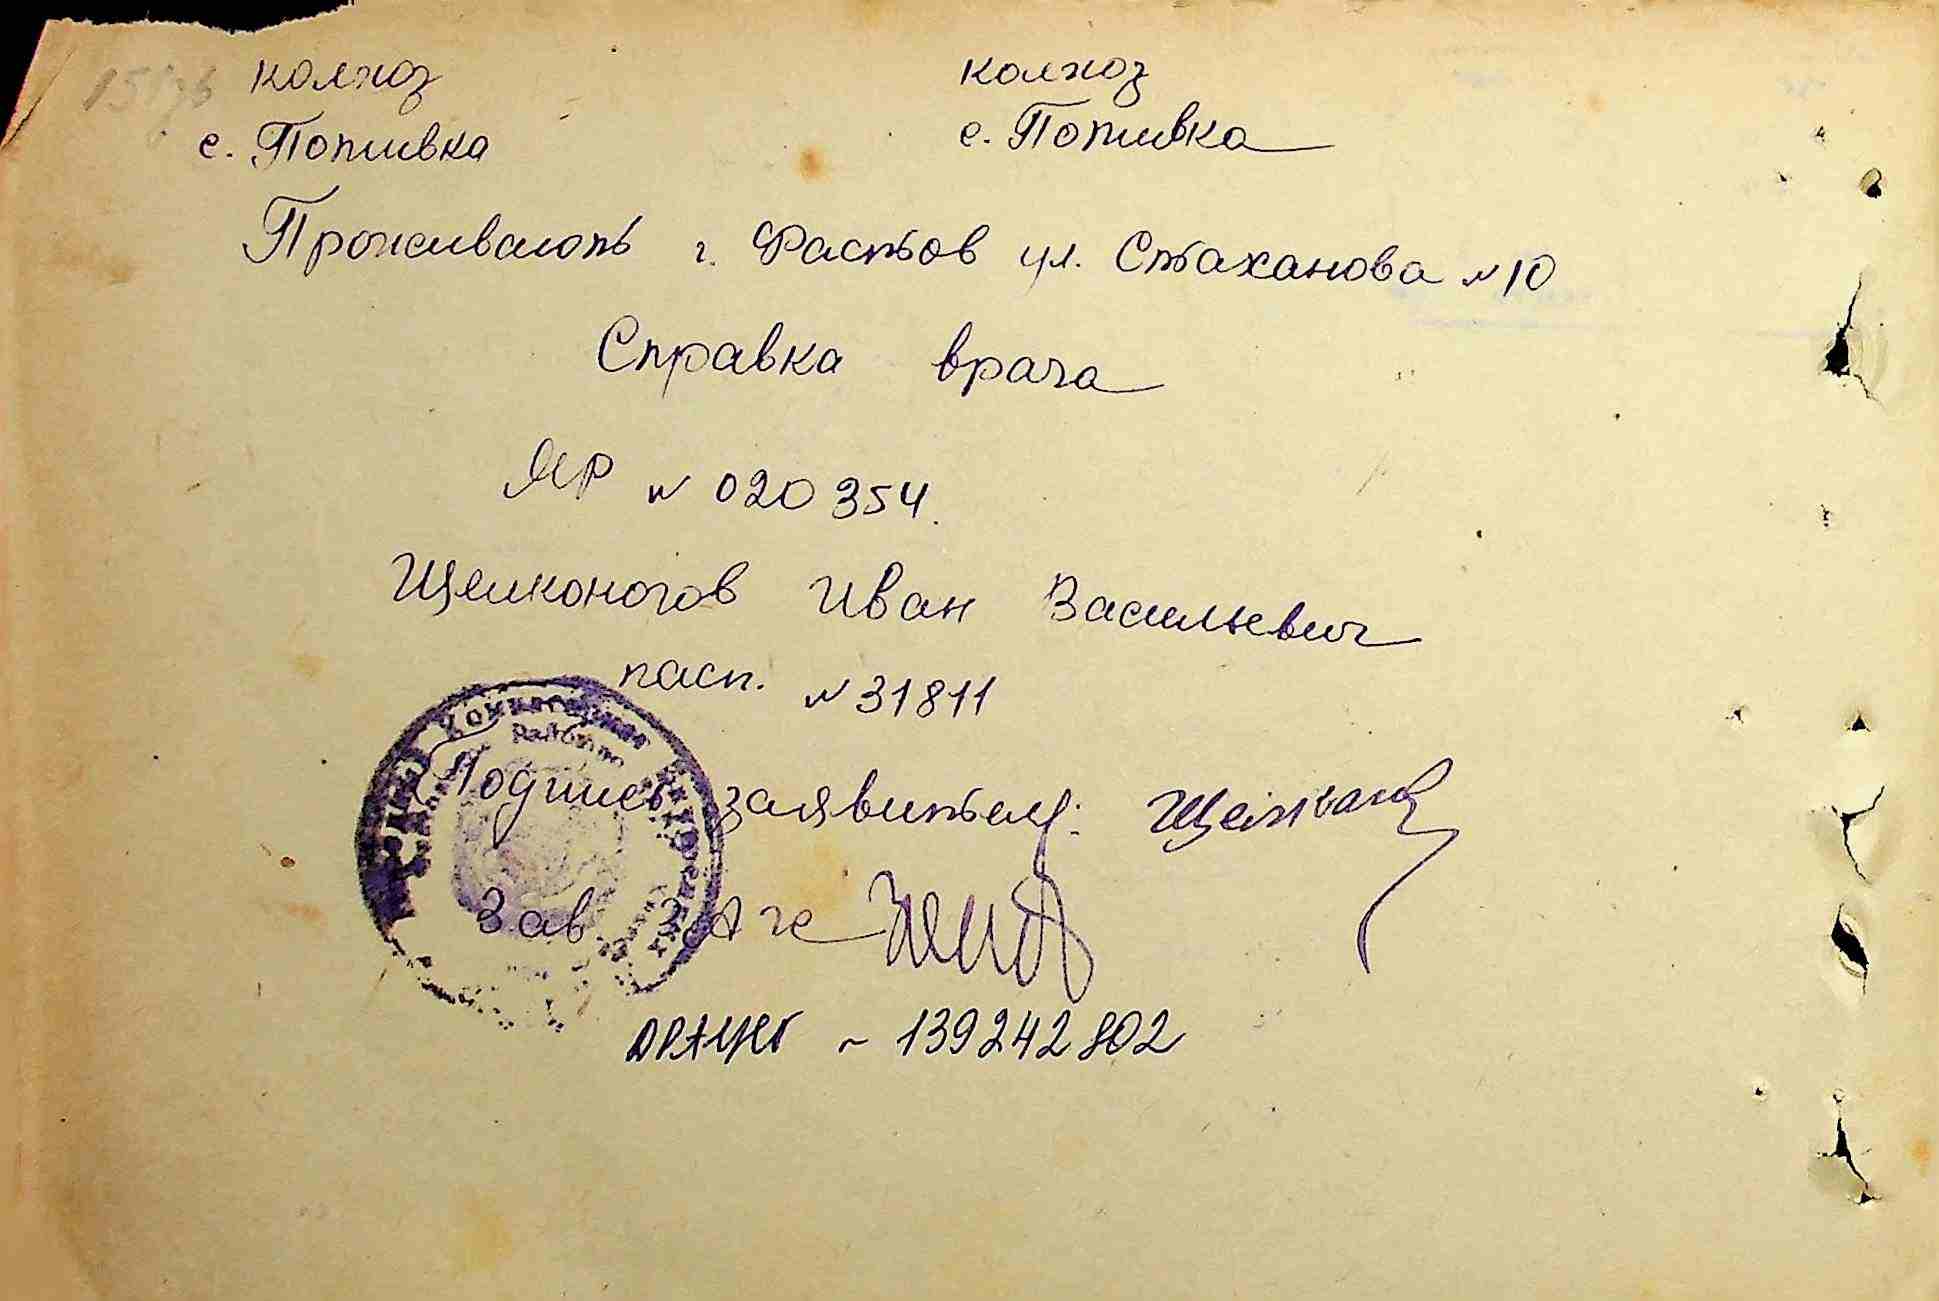 колхоз колхоз
с. Попивка с. Попивка
Проживают г. Фастов ул. Стаханова № 10
Справка врача
ЯР № 020354.
Щелконогов Иван Васильевич
пасп. № 31811
Подпись заявителя:
Зав ЗАГС
ДРАЦСГ ~ 139242802